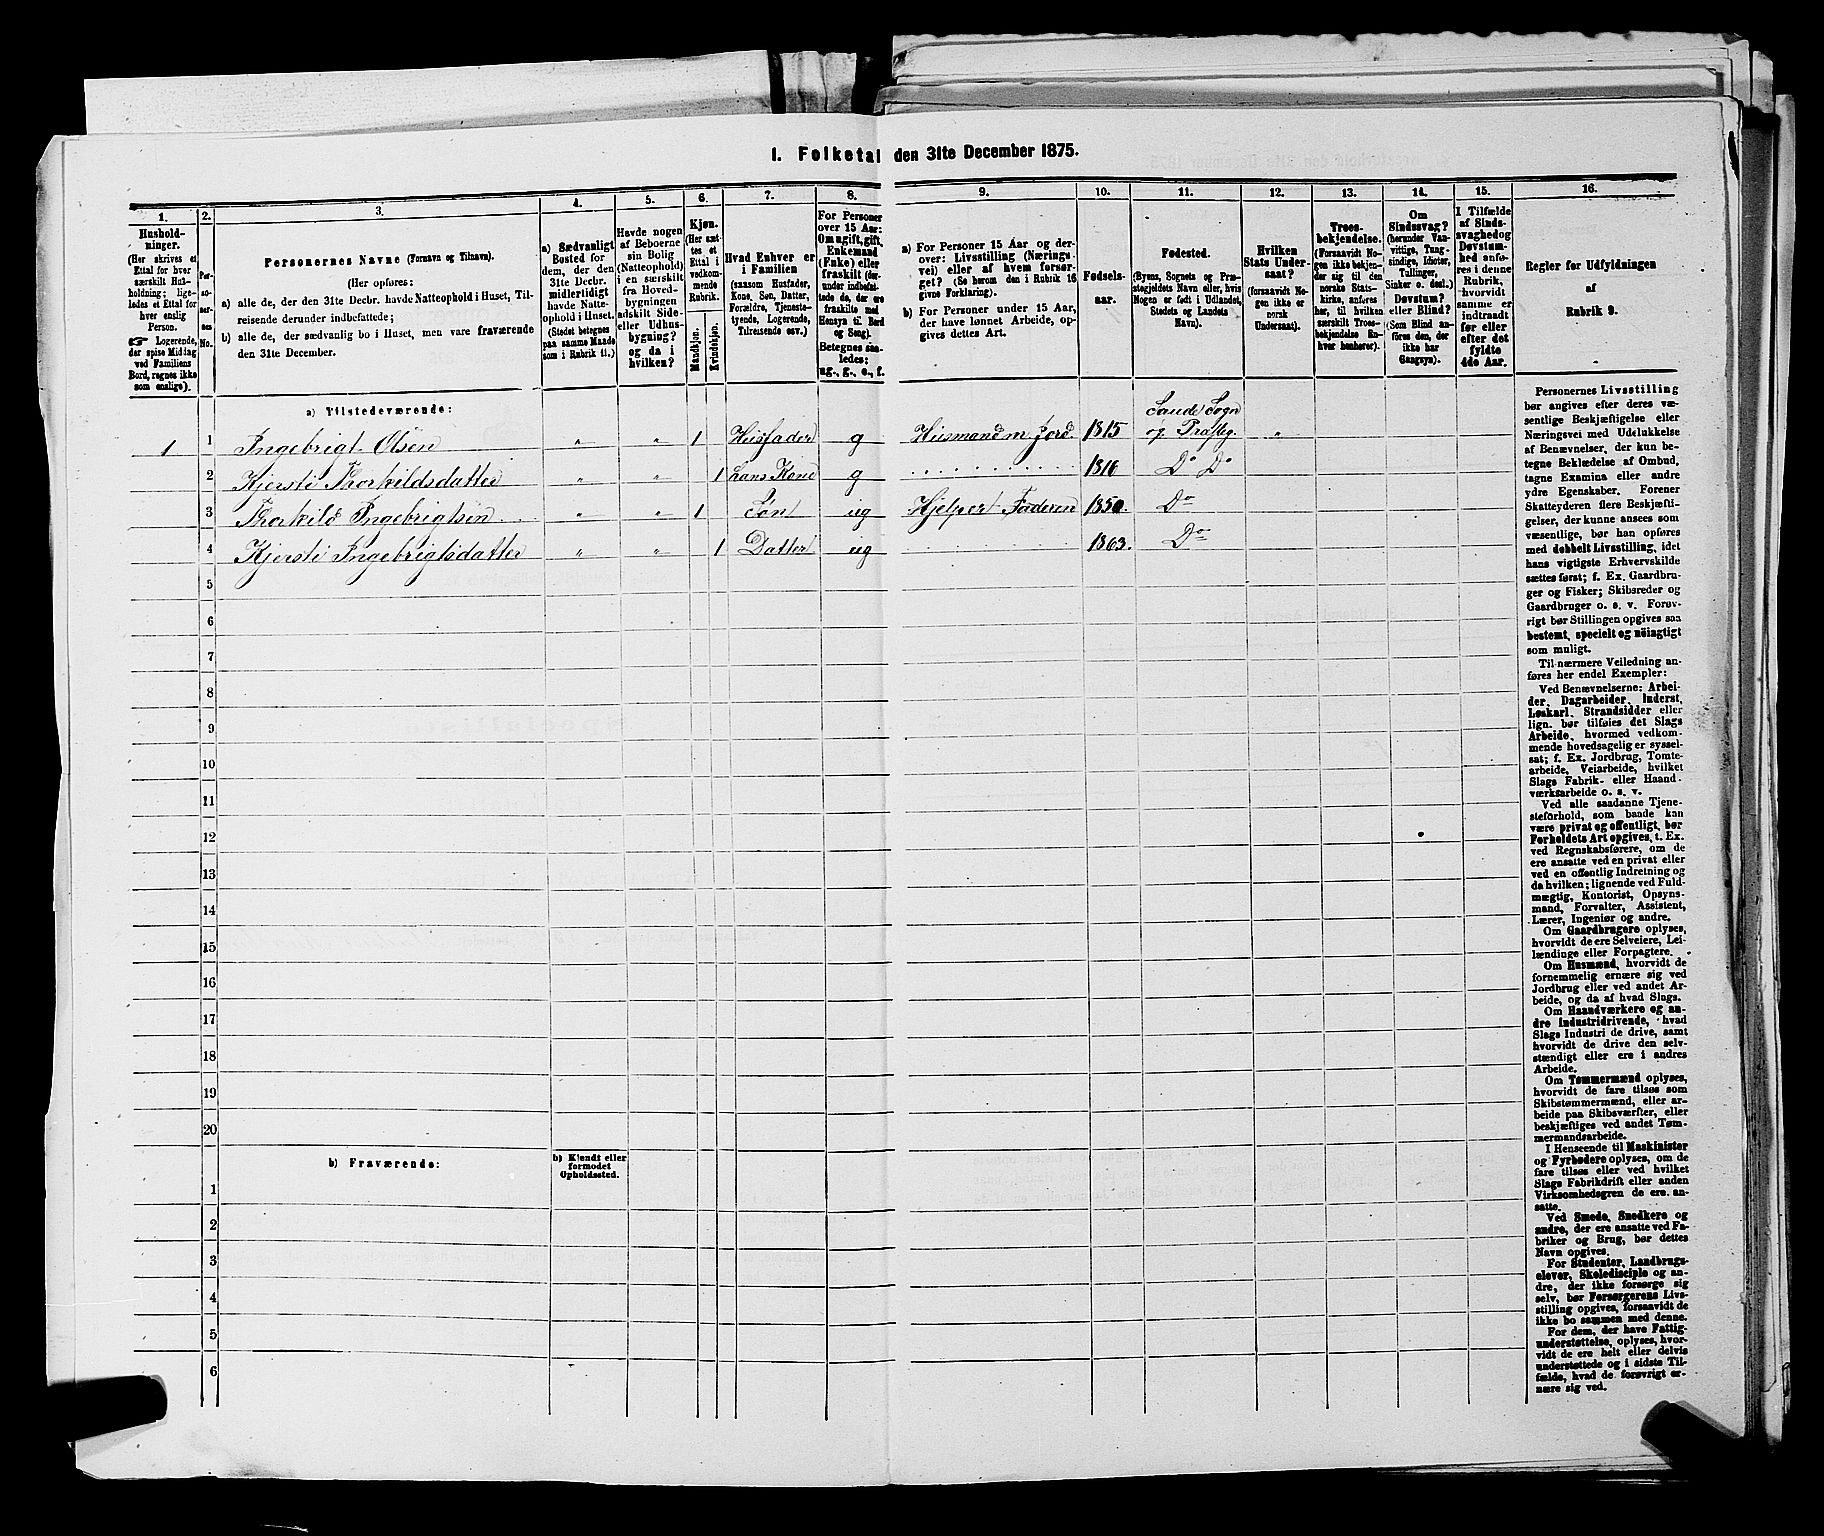 I. Folketal den 31te December 1875.
1.
2.
3.
4.
5.
6.
7.
8.
9.
10.
11.
12.
13.
14.
15.
16.
Hushold-
ninger.
(Her skrives et
Ettal for hver
særskilt Hus-
holdning; lige-
ledes et Ettal for
hver enslig
Person.
☞ Logerende,
der spise Middag
ved Familiens
Bord, regnes ikke
som enslige).
Per-
so-
ner-
nes
No.
Personernes Navne (Fornavn og Tilnavn).
(Her opføres:
a) alle de, der den 31te Decbr. havde Natteophold i Huset, Til-
reisende derunder indbefattede;
b) alle de, der sædvanlig bo i Huset, men vare fraværende
den 31te December.
a) Sædvanligt
Bosted for
dem, der den
31te Decbr.
midlertidigt
havde Natte-
ophold i Huset.
(Stedet betegnes
paa samme Maade
som i Rubrik 11.)
Havde nogen
af Beboerne
sin Bolig
(Natteophold)
i en særskilt
fra Hoved-
bygningen
adskilt Side-
eller Udhus-
bygning?
og da i
hvilken?
Kjøn.
(Her sæt-
tes et
Ettal i
vedkom-
mende
Rubrik.
Mandkjøn.
Kvindekjøn.
Hvad Enhver er
i Familien
(saasom Husfader,
Kone, Søn, Datter,
Forældre, Tjeneste-
tyende, Logerende,
Tilreisende osv.)
For Personer
over 15 Aar:
Om ugift, gift,
Enkemand
(Enke) eller
fraskilt (der-
under indbefat-
tede de, der ere
fraskilte med
Hensyn til Bord
og Seng).
Betegnes saa-
ledes:
ug., g., e., f.
a) For Personer 15 Aar og der-
over: Livsstilling (Nærings-
vei) eller af hvem forsør-
get? (Se herom den i Rubrik 16
givne Forklaring).
b) For Personer under 15 Aar,
der have lønnet Arbeide, op-
gives dettes Art.
Fødsels-
aar.
Fødested.
(Byens, Sognets og Præ-
stegjeldets Navn eller, hvis
Nogen er født i Udlandet,
Stedets og Landets
Navn).
Hvilken
Stats Under-
saat?
(forsaavidt No-
gen ikke er
norsk
Undersaat).
Troes-
bekjendelse.
(Forsaavidt No-
gen ikke bekjen-
der sig til den
norske Stats-
kirke, anføres
her, til hvilken
særskilt Troes-
bekjendelse En-
hver henhører).
Om
Sindssvag?
(herunder Van-
vittige, Tung-
sindige, Idioter,
Tullinger,
Sinker o. desl.).
Døvstum?
eller Blind?
(Som Blind an-
føres den, der
ikke har
Gangsyn).
I Tilfælde
af Sinds-
svaghed og
Døvstum-
hed anfø-
res i denne
Rubrik,
hvorvidt
samme er
indtraadt
før eller
efter det
fyldte
4de Aar.
Regler for Udfyldningen
af
Rubrik 9.
a) Tilstedeværende:
Sande Sogn
1 1 Ingebrigt Olsen " " 1 Husfader g Husmand m Jord. 1815 og Præsteg. "
2 Kjersti Thorkildsdatter " " 1 hans Kone g 1816 Do Do
3 Thorkild Ingebrigtsen " " 1 Søn ug Hjelper Faderen 1850. Do
4 Kjersti Ingebrigtsdatter " " 1 Datter ug 1863. Do
5
6
7
8
9
10
11
12
13
14
15
16
17
18
19
20
b) Fraværende:
b) Kjendt eller
formodet
Opholdssted.
1
2
3
4
5
6
Personernes Livsstilling
bør angives efter deres væ-
sentlige Beskjæftigelse eller
Næringsvei med Udelukkelse
af Benævnelser, der kun be-
tegne Beklædelse af Ombud,
tagne Examina eller andre
ydre Egenskaber. Forener
Skatteyderen flere Beskjæfti-
gelser, der kunne ansees som
væsentlige, bør han opføres
med dobbelt Livsstilling, idet
hans vigtigste Erhvervskilde
sættes først; f. Ex. Gaardbru-
ger og Fisker; Skibsreder og
Gaardbruger o. s. v. Forøv-
rigt bør Stillingen opgives saa
bestemt, specielt og nøiagtigt
som muligt.
Til nærmere Veiledning an-
føres her endel Exempler:
Ved Benævnelserne: Arbei-
der, Dagarbeider, Inderst,
Løskarl, Strandsidder eller
lign. bør tilføies det Slags
Arbeide, hvormed vedkom-
mende hovedsagelig er syssel-
sat; f. Ex. Jordbrug, Tomte-
arbeide, Veiarbeide, hvilket
Slags Fabrik- eller Haand-
værksarbeide o. s. v.
Ved alle saadanne Tjene-
steforhold, som baade kan
være privat og offentligt, bør
Forholdets Art opgives, t. Ex.
ved Regnskabsførere, om de
ere ansatte ved en privat eller
ved en offentlig Indretning og
da hvilken; lignende ved Fuld-
mægtig, Kontorist, Opsyns-
mand, Forvalter, Assistent,
Lærer, Ingeniør og andre.
Om Gaardbrugere oplyses,
hvorvidt de ere Selveiere, Lei-
lændinge eller Forpagtere.
Om Husmænd, hvorvidt de
fornemmelig ernære sig ved
Jordbrug eller ved andet Ar-
beide, og da af hvad Slags.
Om Haandværkere og an-
dre Industridrivende, hvad
Slags Industri de drive, samt
hvorvidt de drive den selv-
stændigt eller ere i andres
Arbeide.
Om Tømmermænd oplyses,
hvorvidt de fare tilsøs som
Skibstømmermænd, eller ar-
beide paa Skibsværfter, eller
beskjæftiges ved andet Tøm-
mermandsarbeide.
I Henseende til Maskinister
og Fyrbødere oplyses, om de
fare tilsøs eller ved hvilket
Slags Fabrikdrift eller anden
Virksomhedsgren de ere an-
satte.
Ved Smede, Snedkere og
andre, der ere ansatte ved Fa-
briker og Brug, bør dettes
Navn opgives.
For Studenter, Landbrugs-
elever, Skoledisciple og an-
dre, der ikke forsørge sig
selv, bør Forsørgerens Livs-
stilling opgives, forsaavidt de
ikke bo sammen med denne.
For dem, der have Fattig-
understøttelse, oplyses, hvor-
vidt de ere helt eller delvis
understøttede og i sidste Til-
fælde, hvad de forøvrigt er-
nære sig ved.